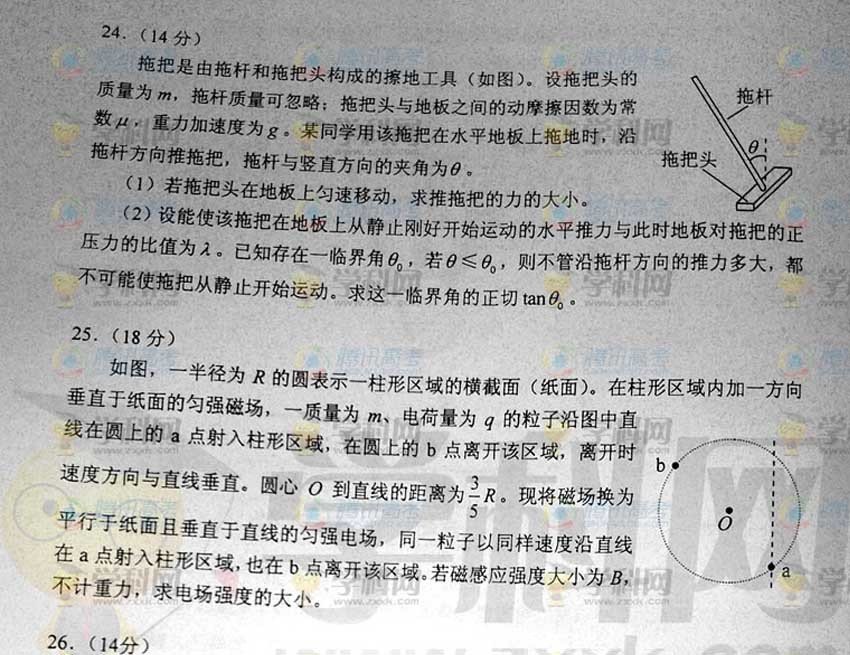 24.（14 分）
拖把是由拖杆和拖把头构成的擦地工具（如图）。设拖把头的
质量为 m，拖杆质量可忽略；拖把头与地板之间的动摩擦因数为常
数 μ，重力加速度为 g。某同学用该拖把在水平地板上拖地时，沿
拖杆方向推拖把，拖杆与竖直方向的夹角为 θ。
（1）若拖把头在地板上匀速移动，求推拖把的力的大小。
（2）设能使该拖把在地板上从静止刚好开始运动的水平推力与此时地板对拖把的正
压力的比值为 λ。已知存在一临界角 θ₀，若 θ≤θ₀，则不管沿拖杆方向的推力多大，都
不可能使拖把从静止开始运动。求这一临界角的正切 tanθ₀。
拖杆
θ
拖把头
25.（18 分）
如图，一半径为 R 的圆表示一柱形区域的横截面（纸面）。在柱形区域内加一方向
垂直于纸面的匀强磁场，一质量为 m、电荷量为 q 的粒子沿图中直
线在圆上的 a 点射入柱形区域，在圆上的 b 点离开该区域，离开时
速度方向与直线垂直。圆心 O 到直线的距离为 3/5 R。现将磁场换为
平行于纸面且垂直于直线的匀强电场，同一粒子以同样速度沿直线
在 a 点射入柱形区域，也在 b 点离开该区域。若磁感应强度大小为 B，
不计重力，求电场强度的大小。
b
O
a
26.（14分）
腾讯高考
学科网
www.zxxk.com